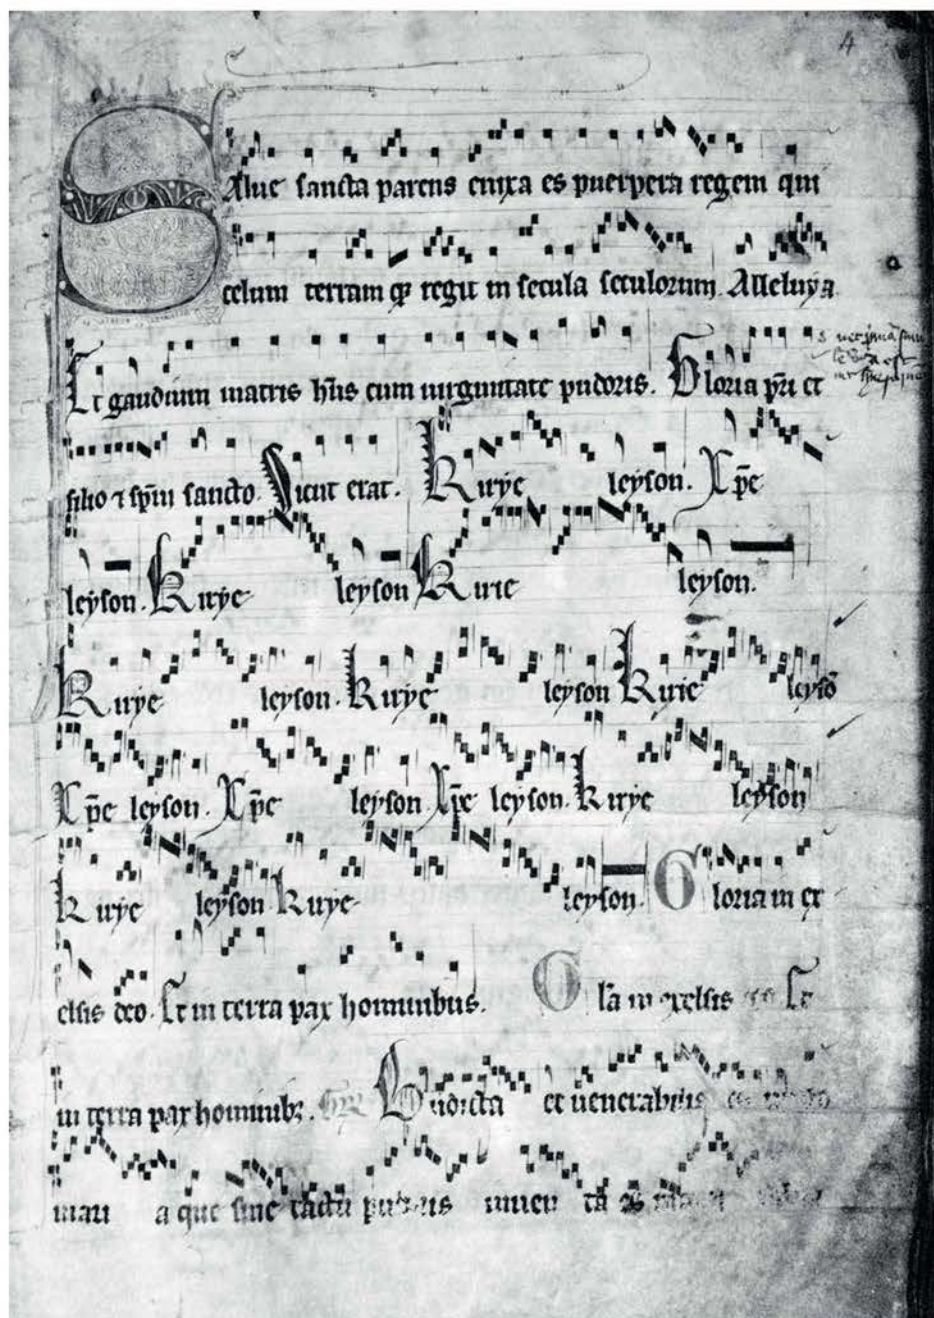 4
Salue sancta parens enixa es puerpera regem qui
celum terram qꝫ regit in secula seculorum. Alleluya
a
Et gaudium matris hn̄s cum uirginitate pudoris. Gloria pr̄i et
filio ⁊ sp̄ui sancto. Sicut erat. Kirye leyson. Xp̄e
leyson. Kirye leyson Kirie leyson.
Kirye leyson. Kirye leyson Kirie leysō
Xp̄e leyson. Xp̄e leyson. Xp̄e leyson. Kirye leyson
Kirye leyson Kirye leyson. Gloria in ex
celsis deo. Et in terra pax hominibus. Gl̄a in excelsis Et
in terra pax hominibꝫ. Gr̄ Bn̄dicta et uenerabilis es
maria que sine tactu pudoris inuenta es